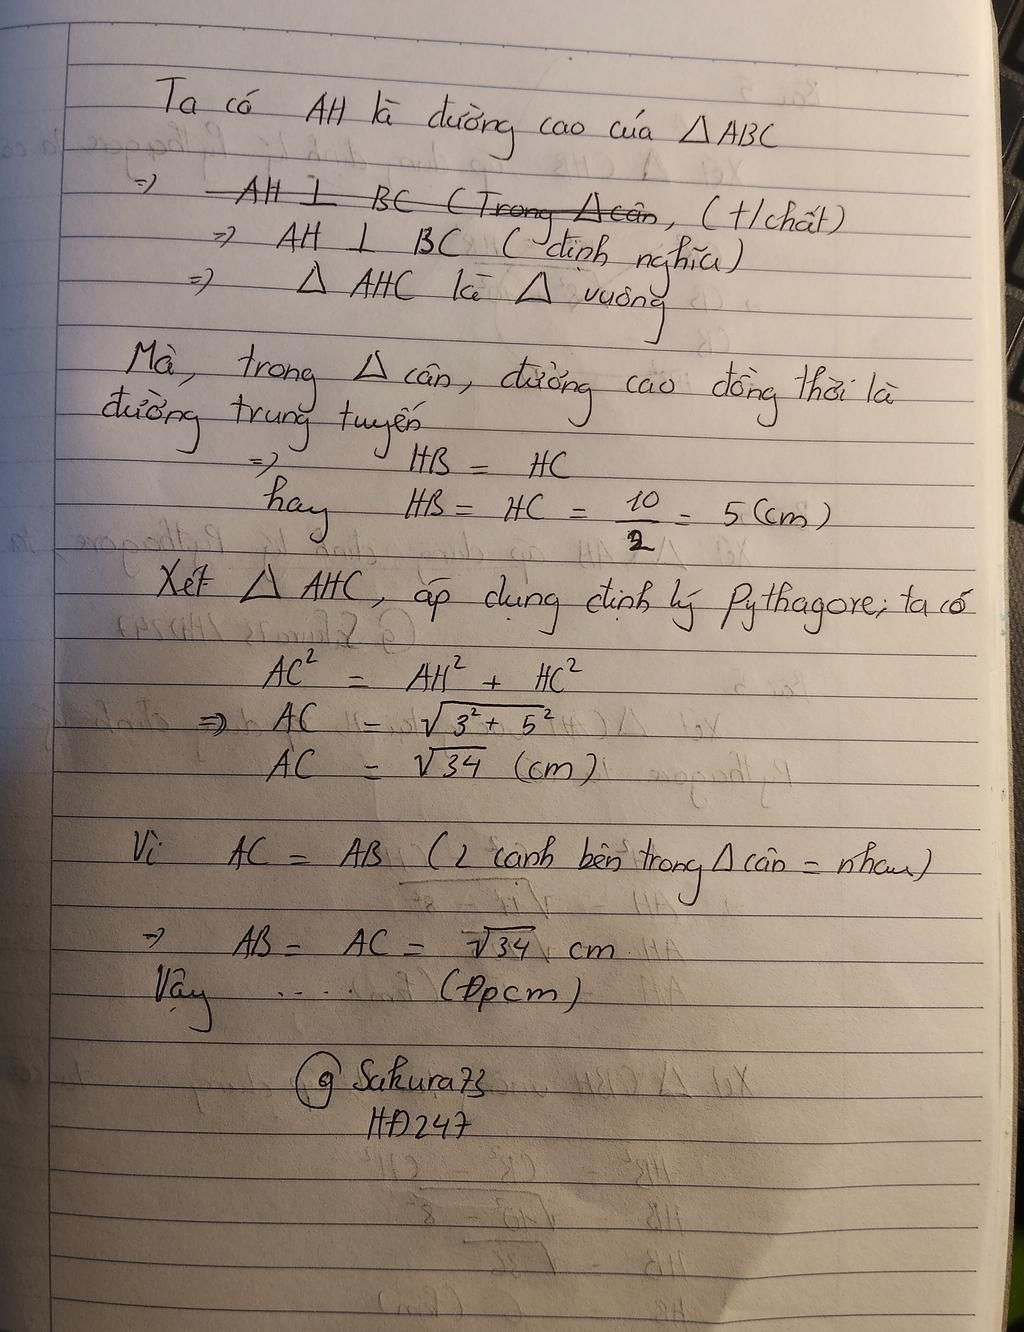 Ta có AH là đường cao của △ABC
=> AH ⊥ BC (Trong △cân, (t/chất)
=> AH ⊥ BC (định nghĩa)
=> △ AHC là △ vuông
Mà, trong △ cân, đường cao đồng thời là
đường trung tuyến
=> HB = HC
hay HB = HC = 10/2 = 5 (cm)
Xét △ AHC, áp dụng định lý Pythagore; ta có
AC² = AH² + HC²
=> AC = √3² + 5²
AC = √34 (cm)
Vì AC = AB (2 cạnh bên trong △ cân = nhau)
=> AB = AC = √34 cm
Vậy ..... (Đpcm)
@ Sakura73
HĐ247